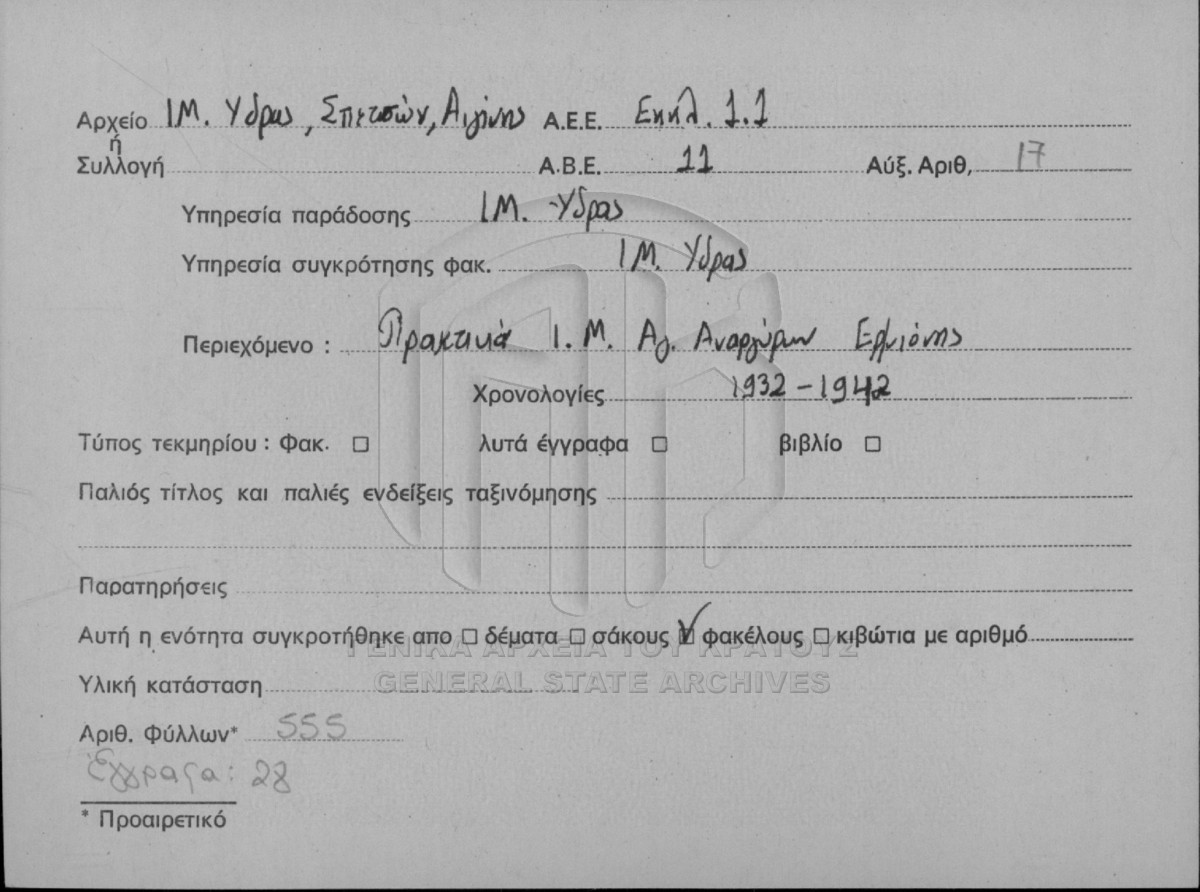 Αρχείο ΙΜ. Υδρας, Σπετσών, Αιγίνης Α.Ε.Ε. Εκκλ. 1.1
ή
Συλλογή Α.Β.Ε. 11 Αύξ. Αριθ, 17
Υπηρεσία παράδοσης ΙΜ. Υδρας
Υπηρεσία συγκρότησης φακ. ΙΜ. Υδρας
Περιεχόμενο : Πρακτικά Ι. Μ. Αγ. Αναργύρων Ερμιόνης
Χρονολογίες 1932 - 1942
Τύπος τεκμηρίου : Φακ. ☐ λυτά έγγραφα ☐ βιβλίο ☐
Παλιός τίτλος και παλιές ενδείξεις ταξινόμησης
Παρατηρήσεις
Αυτή η ενότητα συγκροτήθηκε απο ☐ δέματα ☐ σάκους ☑ φακέλους ☐ κιβώτια με αριθμό
ΓΕΝΙΚΑ ΑΡΧΕΙΑ ΤΟΥ ΚΡΑΤΟΥΣ
GENERAL STATE ARCHIVES
Υλική κατάσταση
Αριθ. Φύλλων* 555
Έγγραφα: 28
* Προαιρετικό